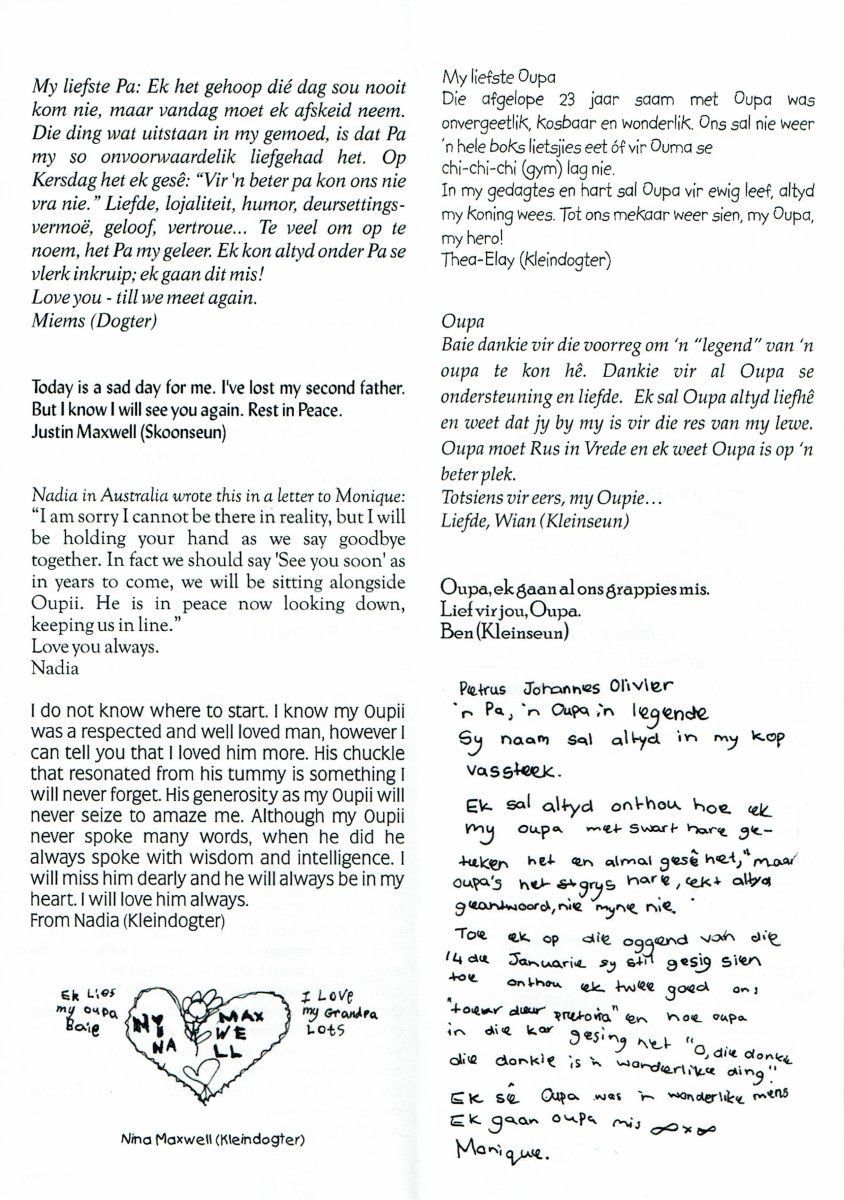 My liefste Pa: Ek het gehoop dié dag sou nooit
kom nie, maar vandag moet ek afskeid neem.
Die ding wat uitstaan in my gemoed, is dat Pa
my so onvoorwaardelik liefgehad het. Op
Kersdag het ek gesê: “Vir 'n beter pa kon ons nie
vra nie.” Liefde, lojaliteit, humor, deursettings-
vermoë, geloof, vertroue... Te veel om op te
noem, het Pa my geleer. Ek kon altyd onder Pa se
vlerk inkruip; ek gaan dit mis!
Love you - till we meet again.
Miems (Dogter)
Today is a sad day for me. I've lost my second father.
But I know I will see you again. Rest in Peace.
Justin Maxwell (Skoonseun)
Nadia in Australia wrote this in a letter to Monique:
“I am sorry I cannot be there in reality, but I will
be holding your hand as we say goodbye
together. In fact we should say 'See you soon' as
in years to come, we will be sitting alongside
Oupii. He is in peace now looking down,
keeping us in line.”
Love you always.
Nadia
I do not know where to start. I know my Oupii
was a respected and well loved man, however I
can tell you that I loved him more. His chuckle
that resonated from his tummy is something I
will never forget. His generosity as my Oupii will
never seize to amaze me. Although my Oupii
never spoke many words, when he did he
always spoke with wisdom and intelligence. I
will miss him dearly and he will always be in my
heart. I will love him always.
From Nadia (Kleindogter)
Ek Lies
my oupa
Baie
NI
NA
MAX
WE
LL
I Love
my Grandpa
LOTS
Nina Maxwell (Kleindogter)
My liefste Oupa
Die afgelope 23 jaar saam met Oupa was
onvergeetlik, kosbaar en wonderlik. Ons sal nie weer
'n hele boks lietsjies eet óf vir Ouma se
chi-chi-chi (gym) lag nie.
In my gedagtes en hart sal Oupa vir ewig leef, altyd
my koning wees. Tot ons mekaar weer sien, my Oupa,
my hero!
Thea-Elay (Kleindogter)
Oupa
Baie dankie vir die voorreg om ‘n “legend” van ‘n
oupa te kon hê. Dankie vir al Oupa se
ondersteuning en liefde. Ek sal Oupa altyd liefhê
en weet dat jy by my is vir die res van my lewe.
Oupa moet Rus in Vrede en ek weet Oupa is op ‘n
beter plek.
Totsiens vir eers, my Oupie…
Liefde, Wian (Kleinseun)
Oupa, ek gaan al ons grappies mis.
Lief vir jou, Oupa.
Ben (Kleinseun)
Petrus Johannes Olivier
'n Pa, 'n Oupa 'n legende
Sy naam sal altyd in my kop
vassteek.
Ek sal altyd onthou hoe ek
my oupa met swart hare ge-
teken het en almal gesê het, "maar
oupa's het grys hare, ek altyd
geantwoord, nie myne nie.
Toe ek op die oggend van die
14de Januarie sy stil gesig sien
toe onthou ek twee goed ons
"toeur deur pretoria" en hoe oupa
in die kar gesing het "O, die donkie
die donkie is 'n wonderlike ding".
Ek sê Oupa was 'n wonderlike mens
Ek gaan oupa mis ∞×∞
Monique.